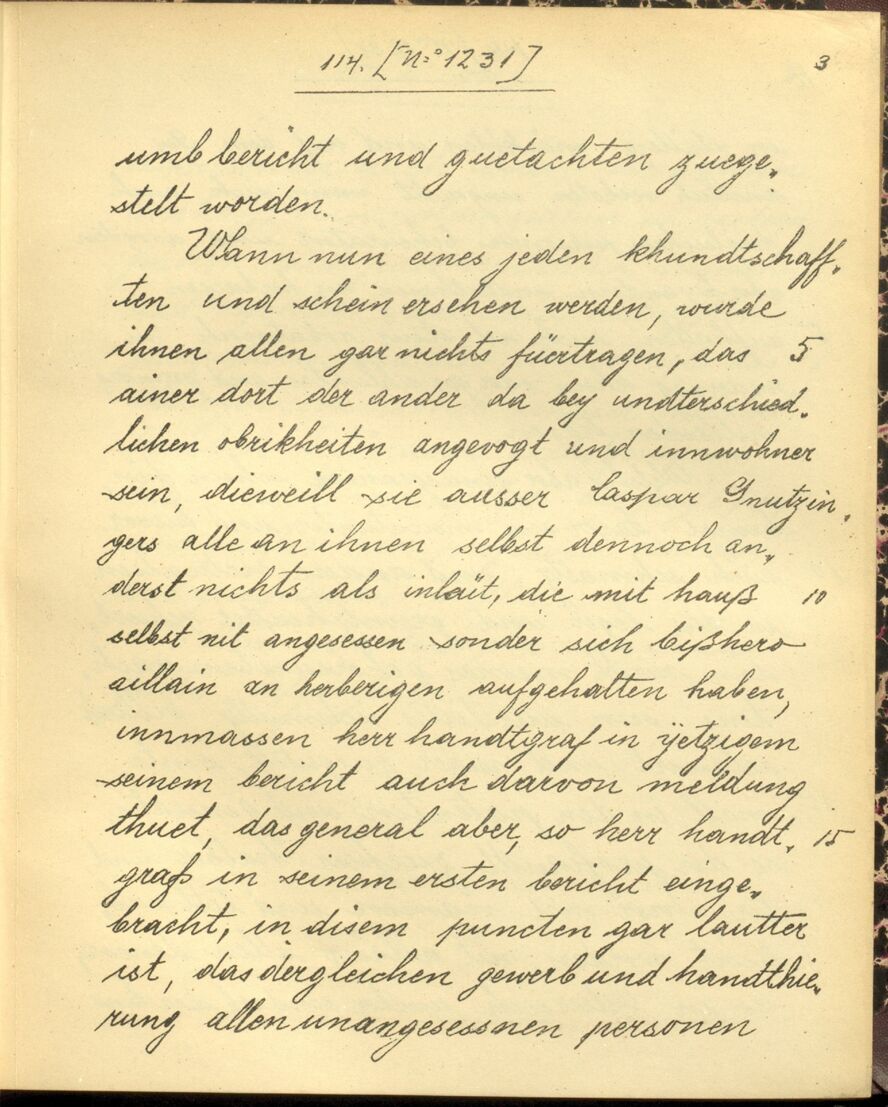 114. [No 1231]
3
umb bericht und guetachten zuege„
stelt worden.
Wann nun eines jeden khundtschaff„
ten und schein ersehen werden, wurde
ihnen allen gar nichts füertragen, das 5
ainer dort der ander da bey undterschied„
lichen obrikheiten angevogt und innwohner
sein, dieweill sie ausser Caspar Gnutzin„
gers alle an ihnen selbst dennoch an„
derst nichts als inleüt, die mit hauß 10
selbst nit angesessen sonder sich bißhero
aillain an herberigen aufgehalten haben,
innmassen herr handtgraf in ÿetzigem
seinem bericht auch darvon meldung
thuet, das general aber, so herr handt„ 15
graf in seinem ersten bericht einge„
bracht, in disem puncten gar lautter
ist, das dergleichen gewerb und handthie„
rung allen unangesessnen personen